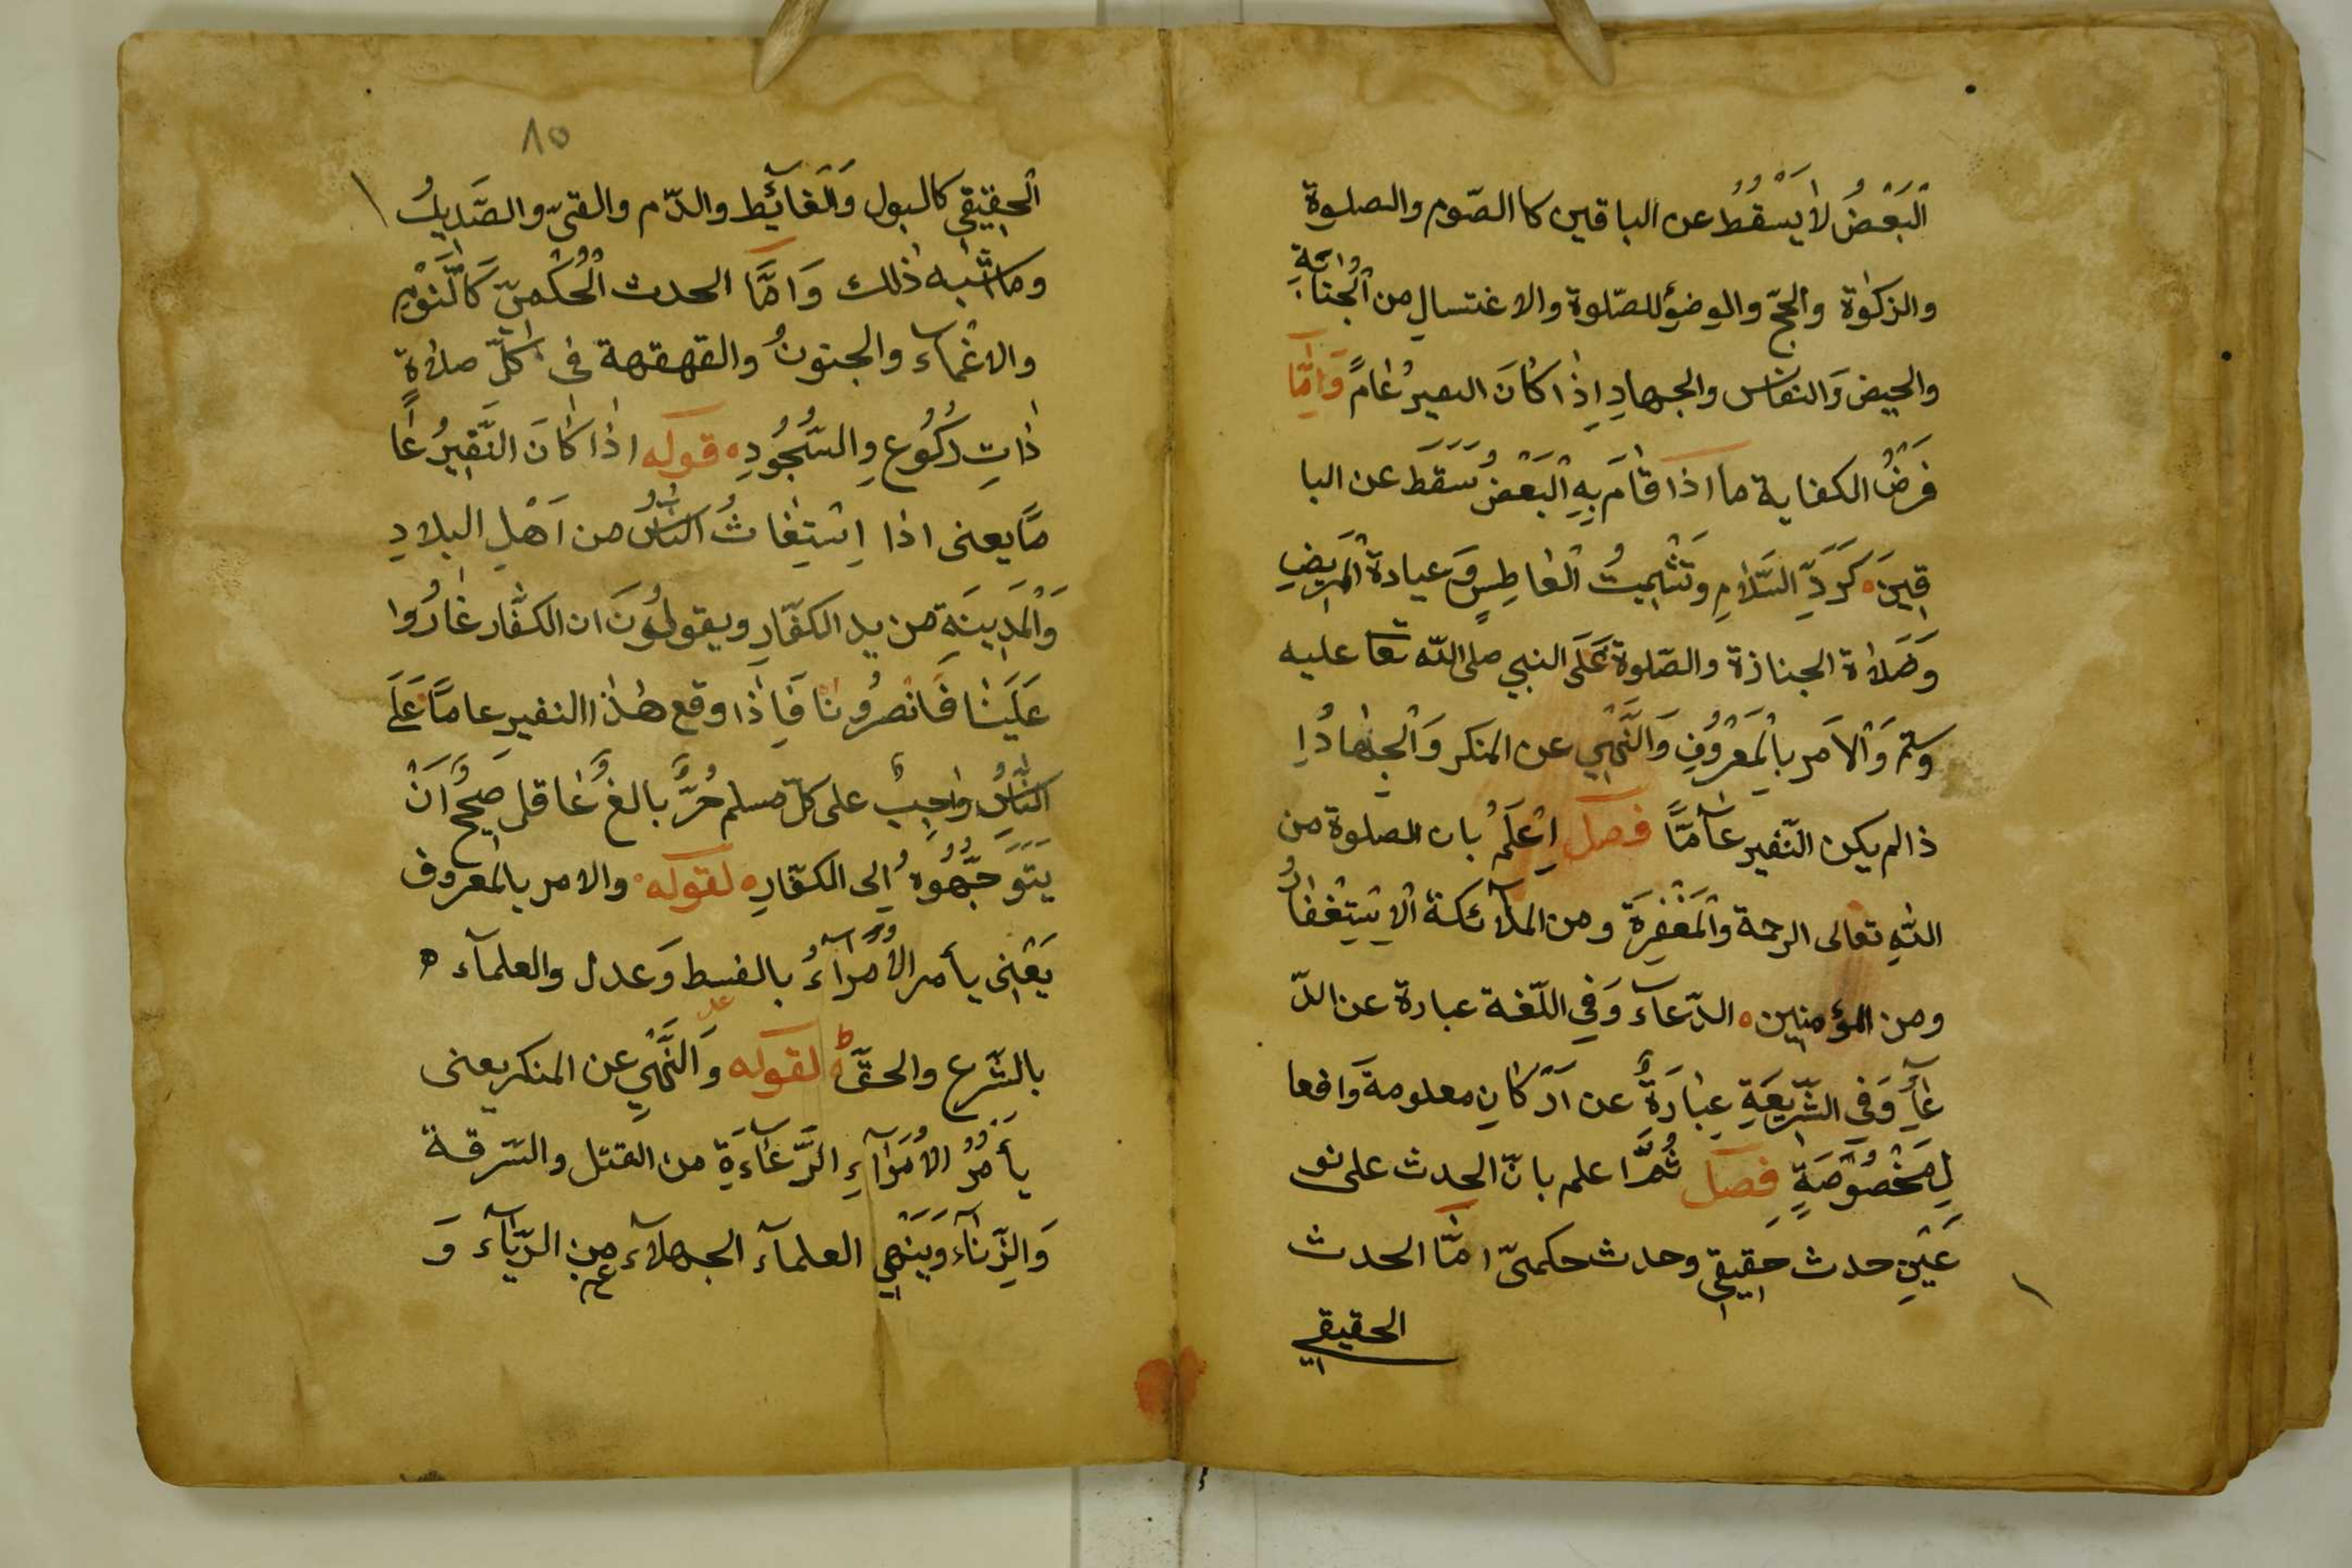 اَلْبَعْضُ لَا يَسْقُطُ عن الباقين كا الصّوم والصلوة
والزكوٰة والحجّ والوضؤ للصّلوة والاغتسال من الْجنابةِ
والحيض وَالنفاس والجهادِ اِذٰا كٰانَ النفيرُ عٰامً وَاَمَّا
فَرْضُ الكفاية ما اذا قٰامَ بِهِ الْبَعْضُ سَقَطَ عن البا
قِينَ كَرَدِّ السَّلٰامِ وتَشْمِيتُ الْعٰاطِسِ وَعيادة الْمَرِيضِ
وَصَلاٰة الجنازة والصّلوة عَلَى النبي صلى اللّه تعا عليه
وسلم وَالْاَمر بِالْمَعْرُوفِ وَالنَّهْىِ عن المنكر وَالْجِهٰادُ اِ
ذا لم يكن النّفير عآمًّا فصل اِعْلَمْ بان الصلوة من
اللّهِ تعالى الرحمة وَالْمَغْفِرَة ومن الملآئكة الْاِسْتِغْفٰارُ
ومن المؤمنين الدّعآء وَفِي اللّغة عبارة عن الدّ
عٰآءِ وَفِي الشَّرِيعَةِ عِبٰارَةٌ عن اَرْكٰانٍ معلومة وَافعا
لِمَخْصُوْصَةٍ فصل ثُمَّ اعلم بانّ الحدث على نو
عَيْنِ حدث حَقِيقِي وحدث حكمىّ امَّا الحدث
الحقيقي
٨٥
الْحقِيقِي كالبول وَالْغَآئِط والدّم والقىّ والصَّدِيدُ
وما اشْبه ذٰلك وَاَمَّا الحدث الْحُكْمىّ كَالنَّوْمِ
والاغْمآء والجنونُ والقهقهة فى كلّ صلاٰةٍ
ذٰاتِ رُكُوعِ وِالسُّجُودِ قوله اذٰا كٰانَ النَّفِيرُ عٰا
مًّا يعنى اذا اِسْتِغٰاثُ النّاسُ من اَهْلِ البلادِ
وَالْمَدِينَةِ من يد الكفّارِ ويقولُونَ ان الكفّار غٰارُوا
عَلَيْنٰا فَانْصُرُونٰا فَاِذٰا وقع هٰذا النفير عامًّا عَلَى
النّاسِ وٰاجِبٌ على كلّ مسلم حُرٌّ بالغٌ عٰاقل صَحِيحٌ اَنْ
يَتَوَجَّهُوهُ اِلى الكفّارِ لقوله والامر بالمعروف
يَعْنِى يأمر الْاُمَرَآءُ بالقسط وَعدل والعلمآء
بالشّرع والحقّ لقوله وَالنَّهْيِ عن المنكر يعنى
يأمُرُ الْاُمَرَآءِ الرَّعَآءَةِ من القتل والسّرقة
وَالزِّنٰآء وَيَنْهَى العلمآء الجهلآء من الرّيٰآء وَ